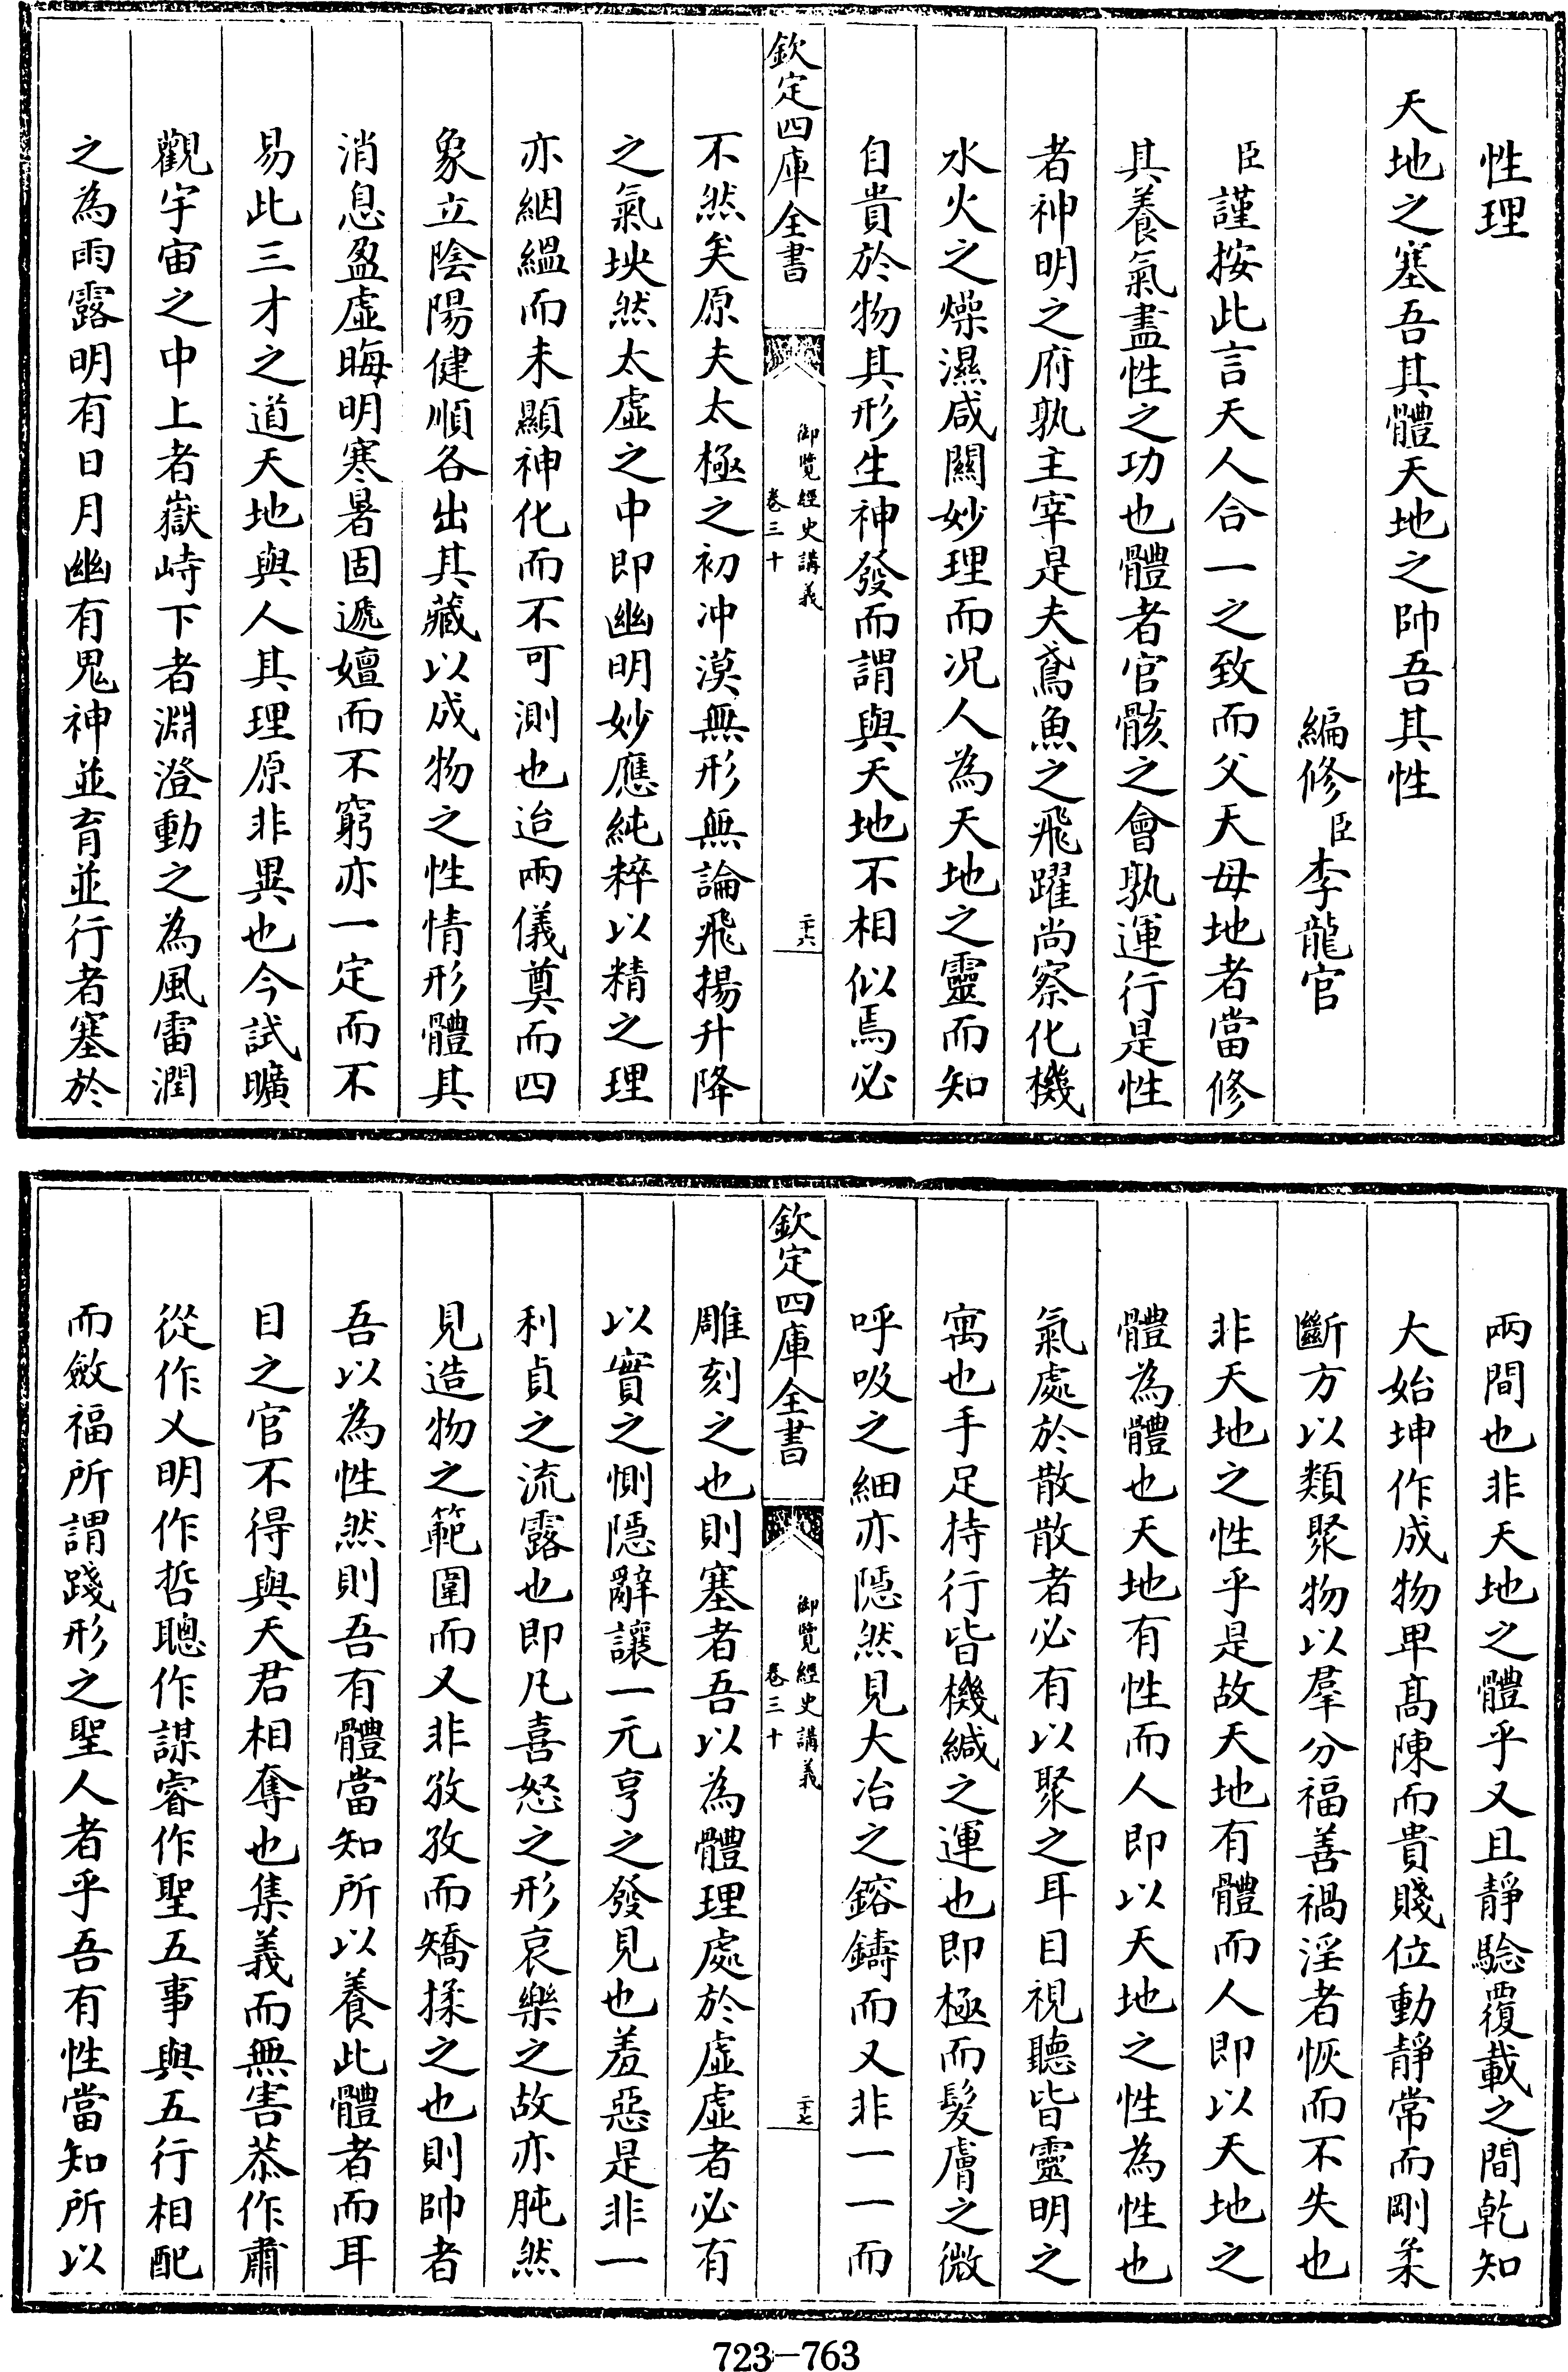 性理
天地之塞吾其體天地之帥吾其性
編修臣李龍官
臣謹按此言天人合一之致而父天母地者當修
其養氣盡性之功也體者官骸之會孰運行是性
者神明之府孰主宰是夫鳶魚之飛躍尚察化機
水火之燥濕咸關妙理而况人為天地之靈而知
自貴於物其形生神發而謂與天地不相似焉必
欽定四庫全書
御覽經史講義
卷三十
二十六
不然矣原夫太極之初冲漠無形無論飛揚升降
之氣坱然太虛之中即幽明妙應純粹以精之理
亦絪縕而未顯神化而不可測也迨兩儀奠而四
象立陰陽健順各出其藏以成物之性情形體其
消息盈虛晦明寒暑固遞嬗而不窮亦一定而不
易此三才之道天地與人其理原非異也今試曠
觀宇宙之中上者嶽峙下者淵澄動之為風雷潤
之為雨露明有日月幽有鬼神並育並行者塞於
兩間也非天地之體乎又且靜驗覆載之間乾知
大始坤作成物卑髙陳而貴賤位動靜常而剛柔
斷方以類聚物以羣分福善禍淫者恢而不失也
非天地之性乎是故天地有體而人即以天地之
體為體也天地有性而人即以天地之性為性也
氣處於散散者必有以聚之耳目視聽皆靈明之
寓也手足持行皆機緘之運也即極而髮膚之微
呼吸之細亦隱然見大冶之鎔鑄而又非一一而
欽定四庫全書
御覽經史講義
卷三十
二十七
雕刻之也則塞者吾以為體理處於虛虛者必有
以實之惻隱辭讓一元亨之發見也羞惡是非一
利貞之流露也即凡喜怒之形哀樂之故亦肫然
見造物之範圍而又非孜孜而矯揉之也則帥者
吾以為性然則吾有體當知所以養此體者而耳
目之官不得與天君相奪也集義而無害恭作肅
從作乂明作哲聰作謀睿作聖五事與五行相配
而斂福所謂踐形之聖人者乎吾有性當知所以
723-763